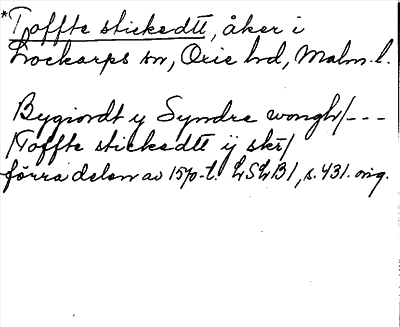 *Toffte stickedtt, åker i
Lockarps sn, Oxie hd, Malm. l.
Bygiordt y Syndre wongh/---
/Toffte stickedtt ij skr/
förra delen av 1570-t. LSLB1, s. 431. orig.